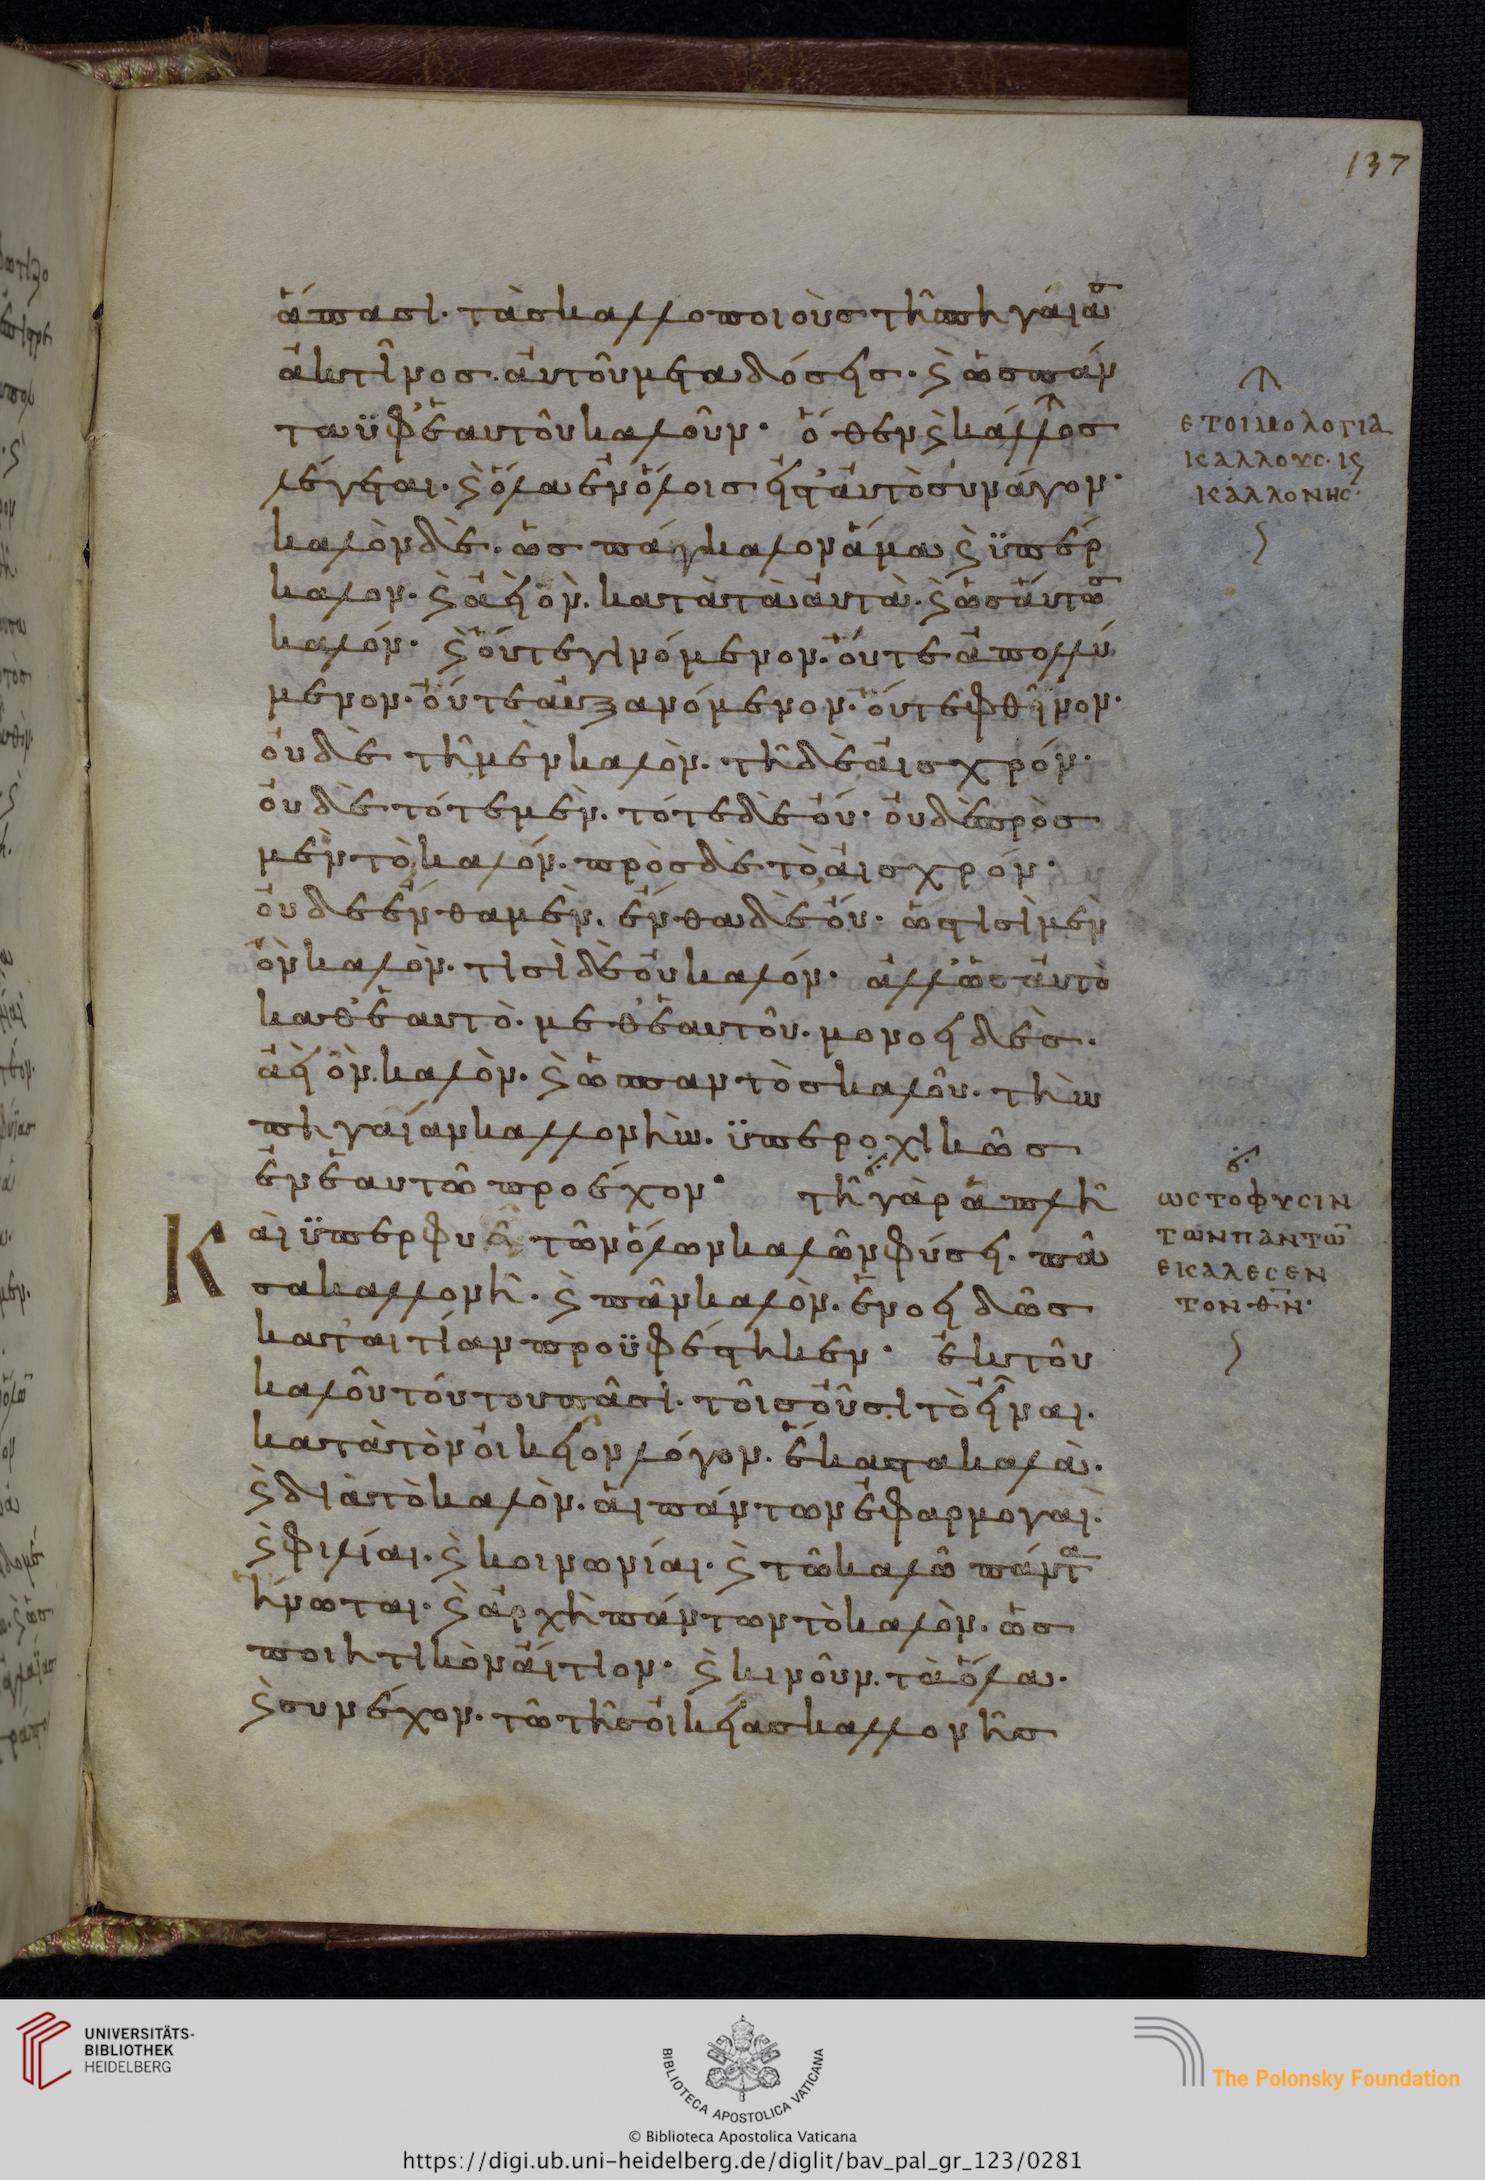 137
ἅπασι· τὰς καλλοποιοὺς τῆς πηγαίας
ἀκτῖνος αὐτοῦ μεταδόσεις· καὶ ὡς πάν
τα ὑφ᾽ ἑαυτοῦ καλοῦν· ὅθεν καὶ κάλλος
λέγεται· καὶ ὅλα ἐν ὅλοις εἰς ταὐτὸ συνάγον·
καλὸν δὲ· ὡς πάγκαλον ἅμα καὶ ὑπέρ
καλον· καὶ ἀεὶ ὂν· κατὰ τὰ αὐτὰ· καὶ ὡσαύτως
καλόν· καὶ οὔτε γινόμενον· οὔτε ἀπολλύ
μενον· οὔτε αὐξανόμενον· οὔτε φθῖνον·
οὐδὲ τῆ μὲν καλὸν· τῆ δὲ αἰσχρόν·
οὐδὲ τότε μὲν· τότε δὲ οὔ· οὐδὲ πρὸς
μὲν τὸ καλόν· πρὸς δὲ τὸ αἰσχρόν·
οὐδε ἔνθα μὲν· ἔνθα δὲ οὔ· ὥς τισὶ μὲν
ὂν καλὸν· τισὶ δὲ οὐ καλόν· ἀλλ᾽ ὡς αὐτὸ
καθ᾽ ἑαυτὸ· μεθ᾽ ἑαυτοῦ· μονοειδὲς·
ἀεὶ ὂν καλὸν· καὶ ὡς παντὸς καλοῦ· τὴν
πηγαίαν καλλονὴν· ὑπεροχικῶς
ἐν ἑαυτῶ προέχον· τῆ γὰρ ἁπλῆ
Καὶ ὑπερφυεῖ τῶν ὅλων καλῶν φύσει· πᾶ
σα καλλονὴ· καὶ πᾶν καλὸν· ἑνοειδῶς
κατ᾽ αἰτίαν προϋφέστηκεν· ἐκ τοῦ
καλοῦ τούτου πᾶσι τοῖς οὖσι τὸ εἶναι·
κατὰ τὸν οἰκεῖον λόγον· ἕκαστα καλὰ·
καὶ διὰ τὸ καλὸν· αἱ πάντων ἐφαρμογαὶ·
καὶ φιλίαι· καὶ κοινωνίαι· καὶ τῶ καλῶ πάντα
ἥνωται· καὶ ἀρχὴ πάντων τὸ καλὸν· ὡς
ποιητικὸν αἴτιον· καὶ κινοῦν τὰ ὅλα·
καὶ συνέχον· τῶ τῆς οἰκείας καλλονῆς
ΕΤΟΙΜΟΛΟΓΙΑ
ΚΑΛΛΟΥС· Κ
ΚΑΛΛΟΝΗС·
ωСΤΟΦΥСΙΝ
ΤωΝΠΑΝΤω
ΕΚΑΛΕСΕΝ
ΤΟΝ·ΘΝ·
UNIVERSITÄTS-
BIBLIOTHEK
HEIDELBERG
BIBLIOTECA APOSTOLICA VATICANA
© Biblioteca Apostolica Vaticana
The Polonsky Foundation
https://digi.ub.uni-heidelberg.de/diglit/bav_pal_gr_123/0281